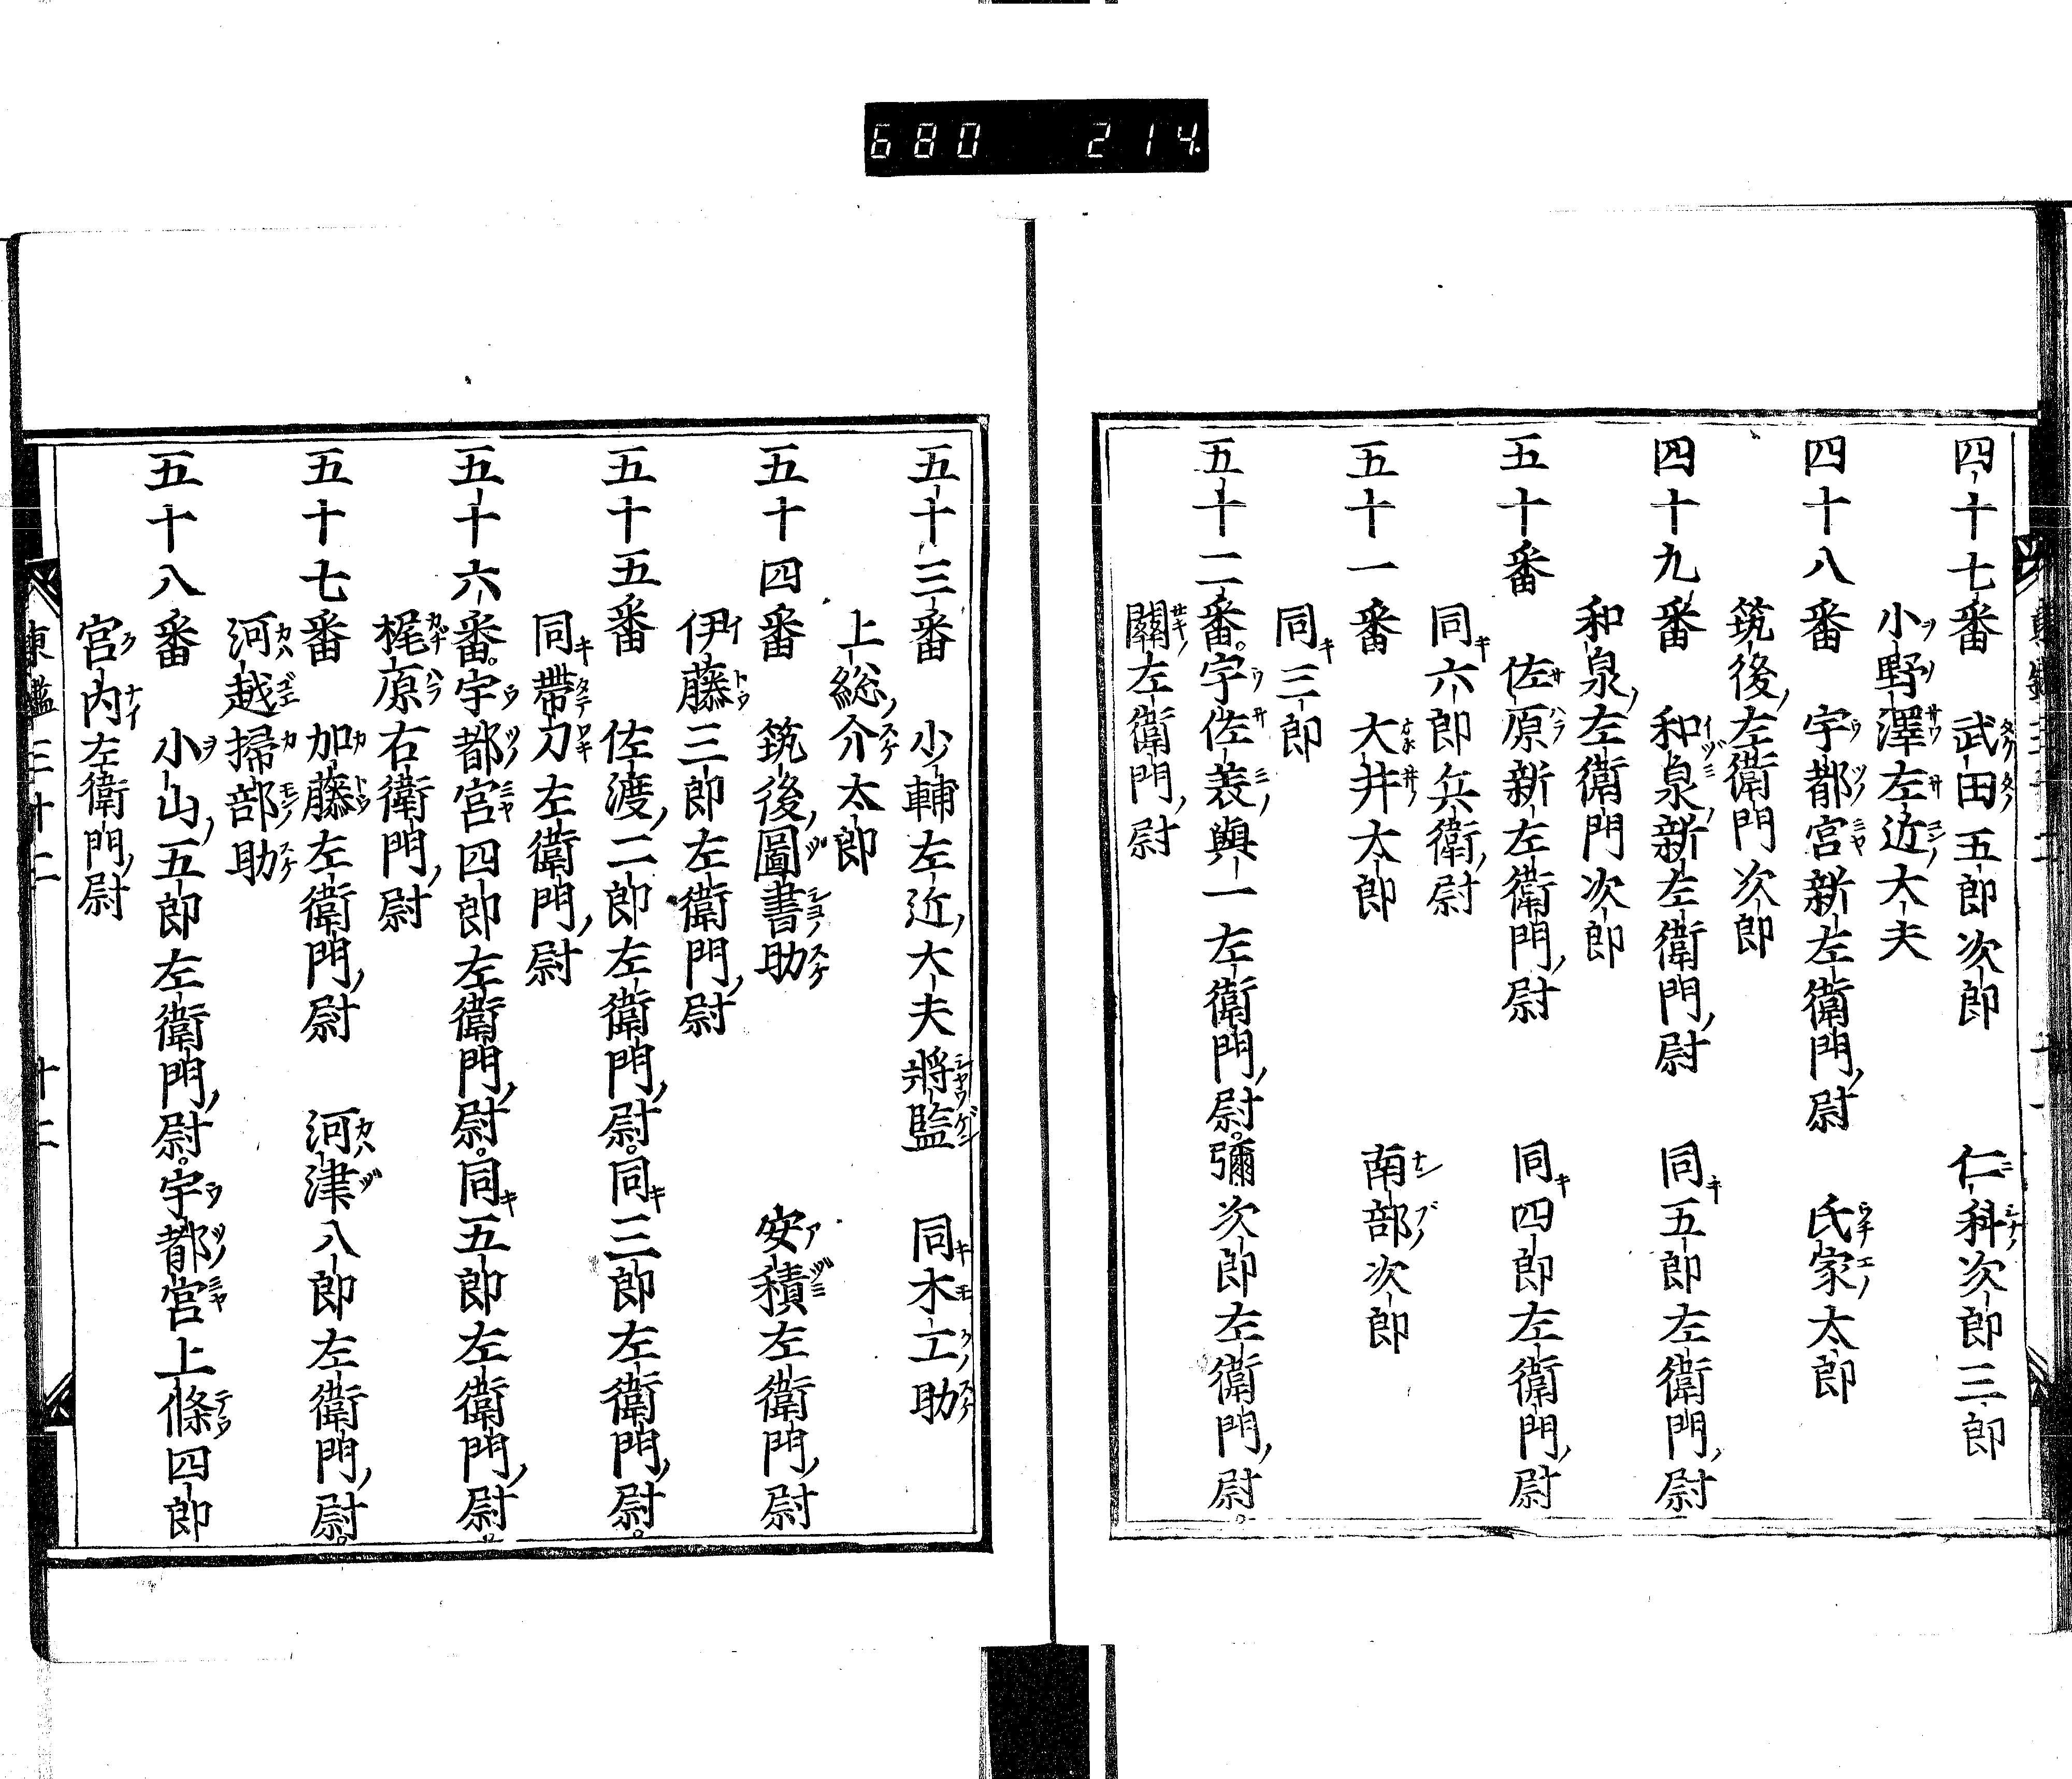 680 214.
四十七番 武田五郎次郎 仁科次郎三郎
小野澤左近大夫
四十八番 宇都宮新左衛門尉 氏家太郎
筑後左衛門次郎
四十九番 和泉新左衛門尉 同五郎左衛門尉
和泉左衛門次郎
五十番 佐原新左衛門尉 同四郎左衛門尉
同六郎兵衛尉
五十一番 大井太郎 南部次郎
同三郎
五十二番。宇佐美與一左衛門尉。彌次郎左衛門尉。
關左衛門尉
五十三番 少輔左近大夫將監 同木工助
上総介太郎
五十四番 筑後圖書助 安積左衛門尉
伊藤三郎左衛門尉
五十五番 佐渡二郎左衛門尉。同三郎左衛門尉。
同帶刀左衛門尉
五十六番。宇都宮四郎左衛門尉。同五郎左衛門尉。
梶原右衛門尉
五十七番 加藤左衛門尉 河津八郎左衛門尉。
河越掃部助
五十八番 小山五郎左衛門尉。宇都宮上條四郎
宮内左衛門尉
東鑑三十二 十二